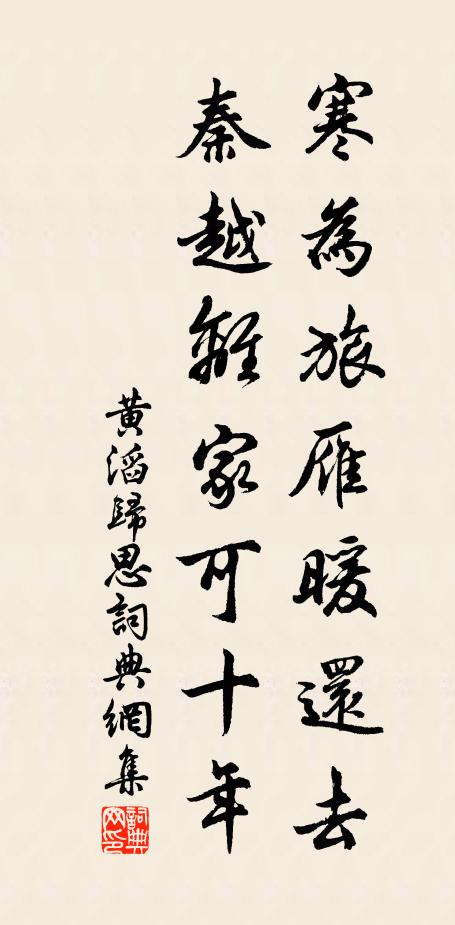 寒為旅雁暖還去
秦越離家可十年
黃滔歸思詞典網集
詞典網印